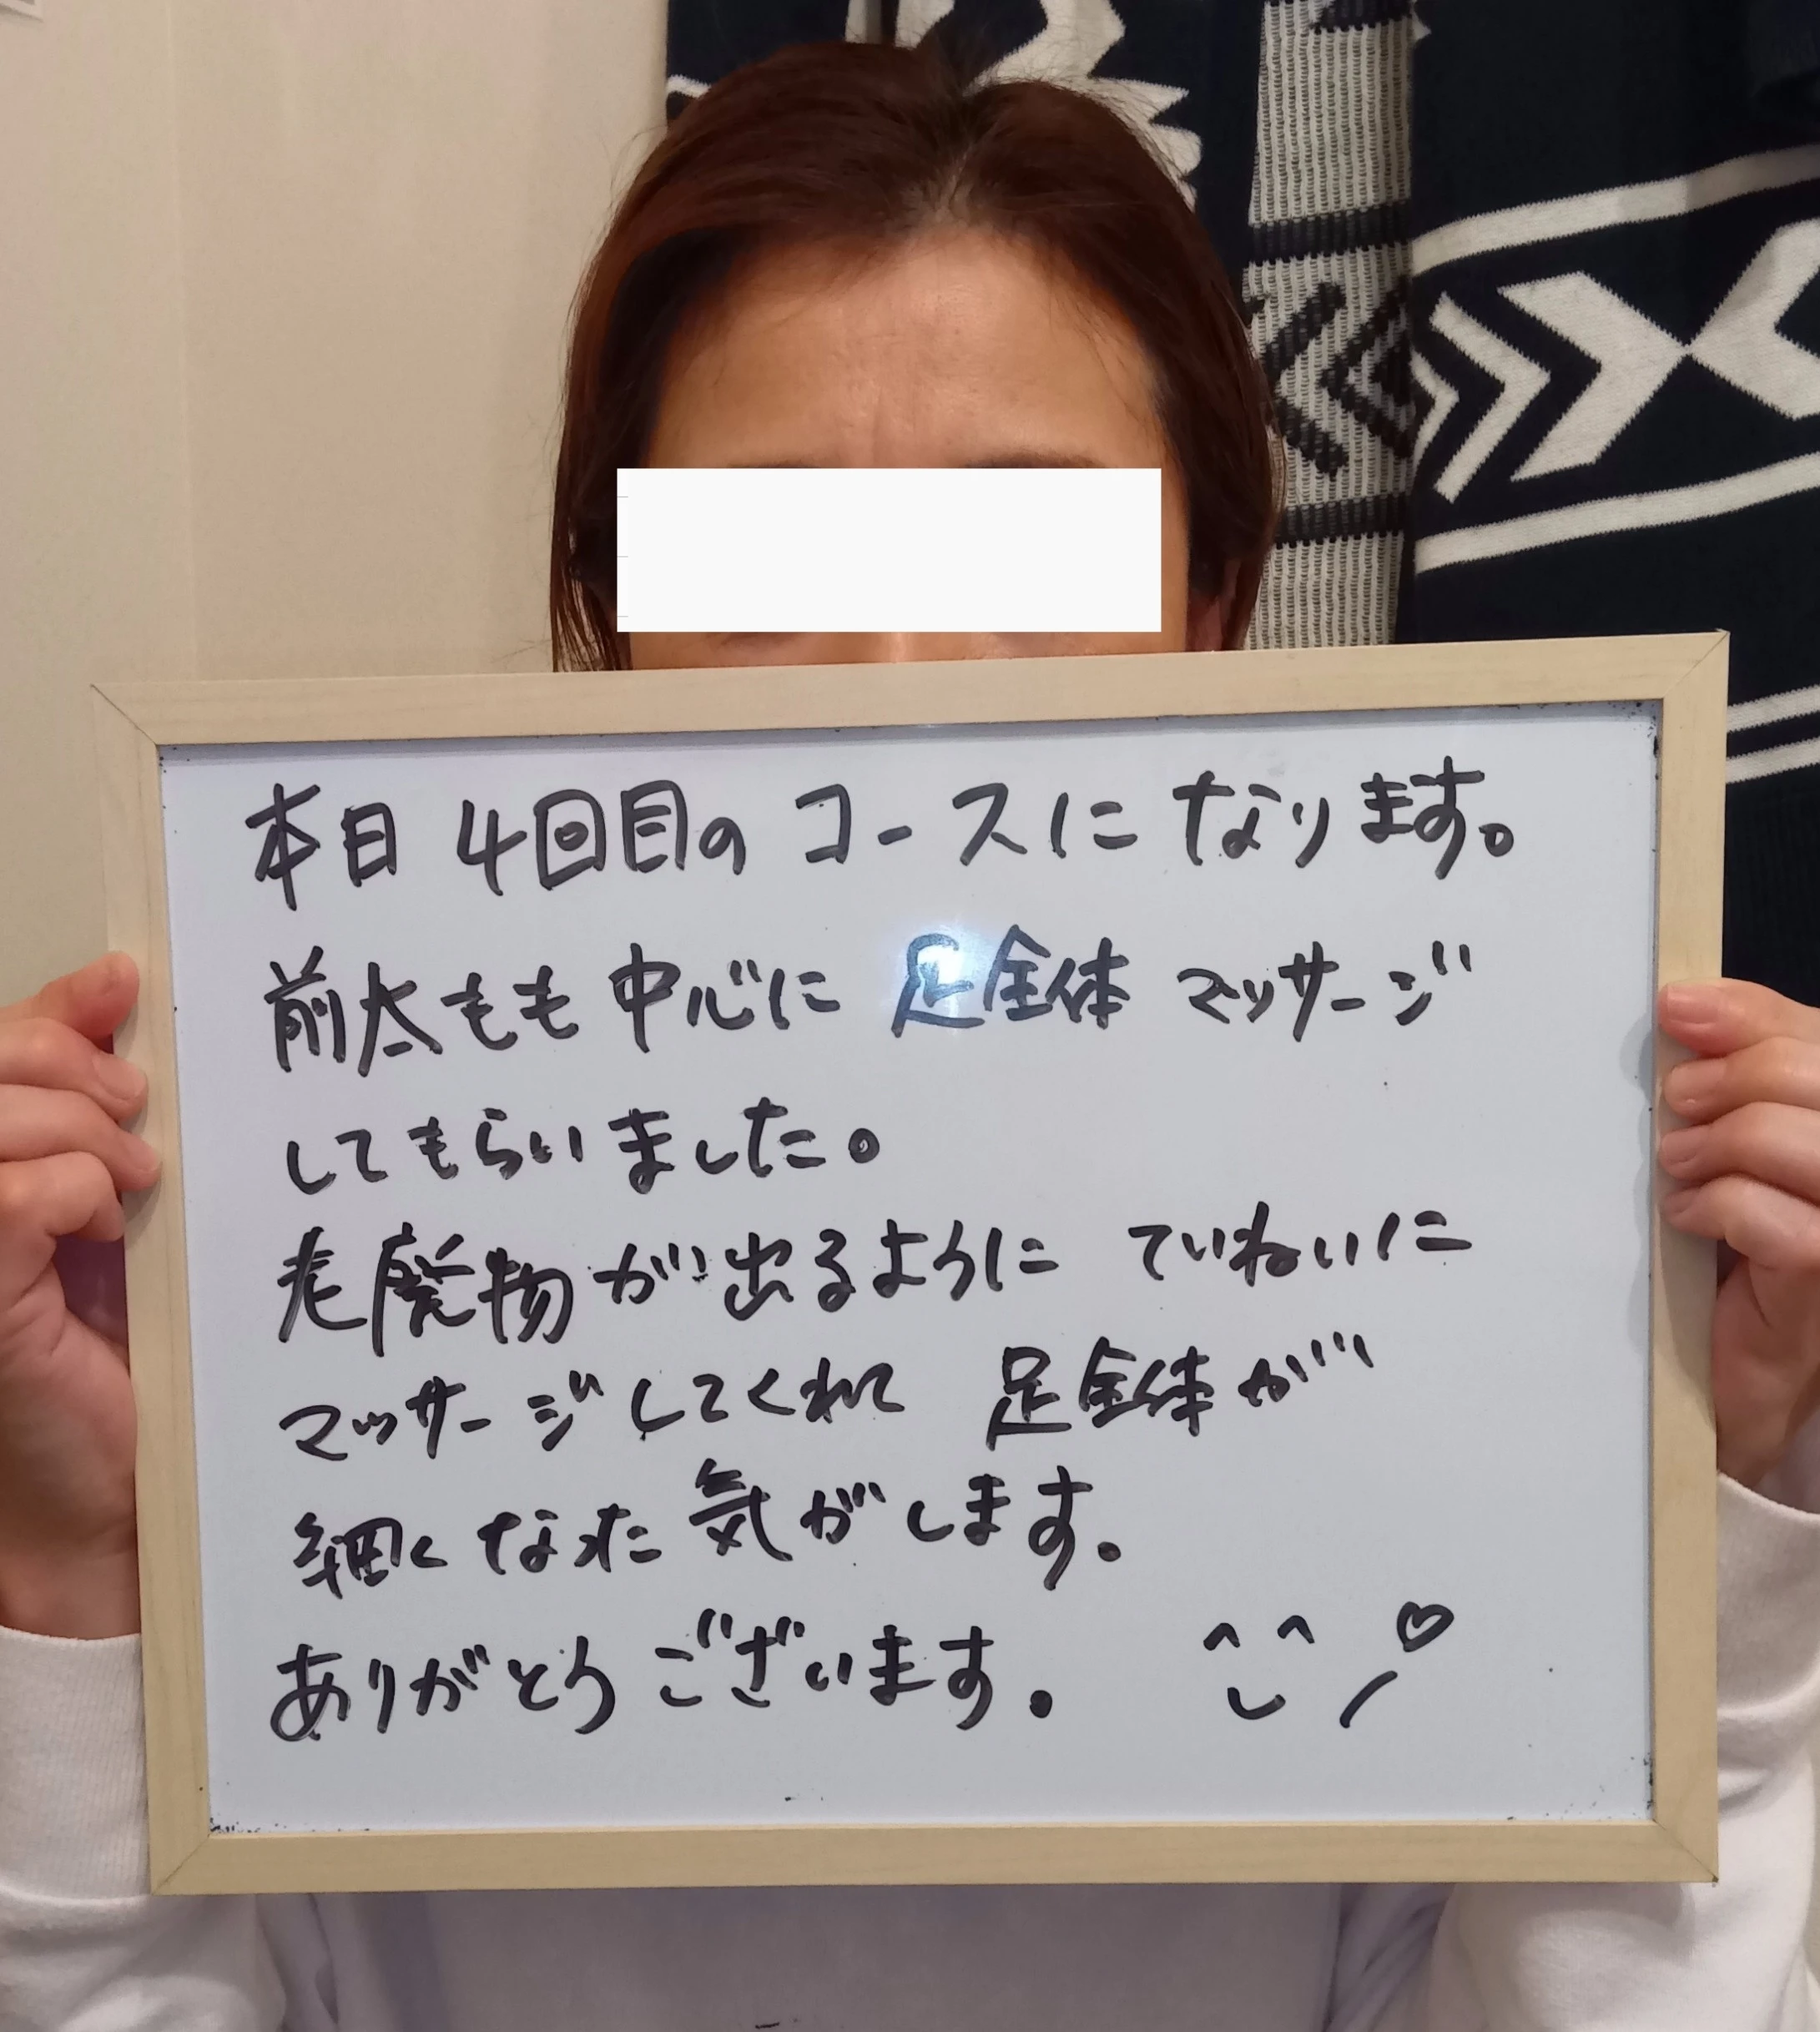 本日 4回目の コースに なります。
前太もも 中心に 足全体 マッサージ
してもらいました。
老廃物が出るように ていねいに
マッサージしてくれて 足全体が
細くなった気がします。
ありがとうございます。 ^ ^ ♡